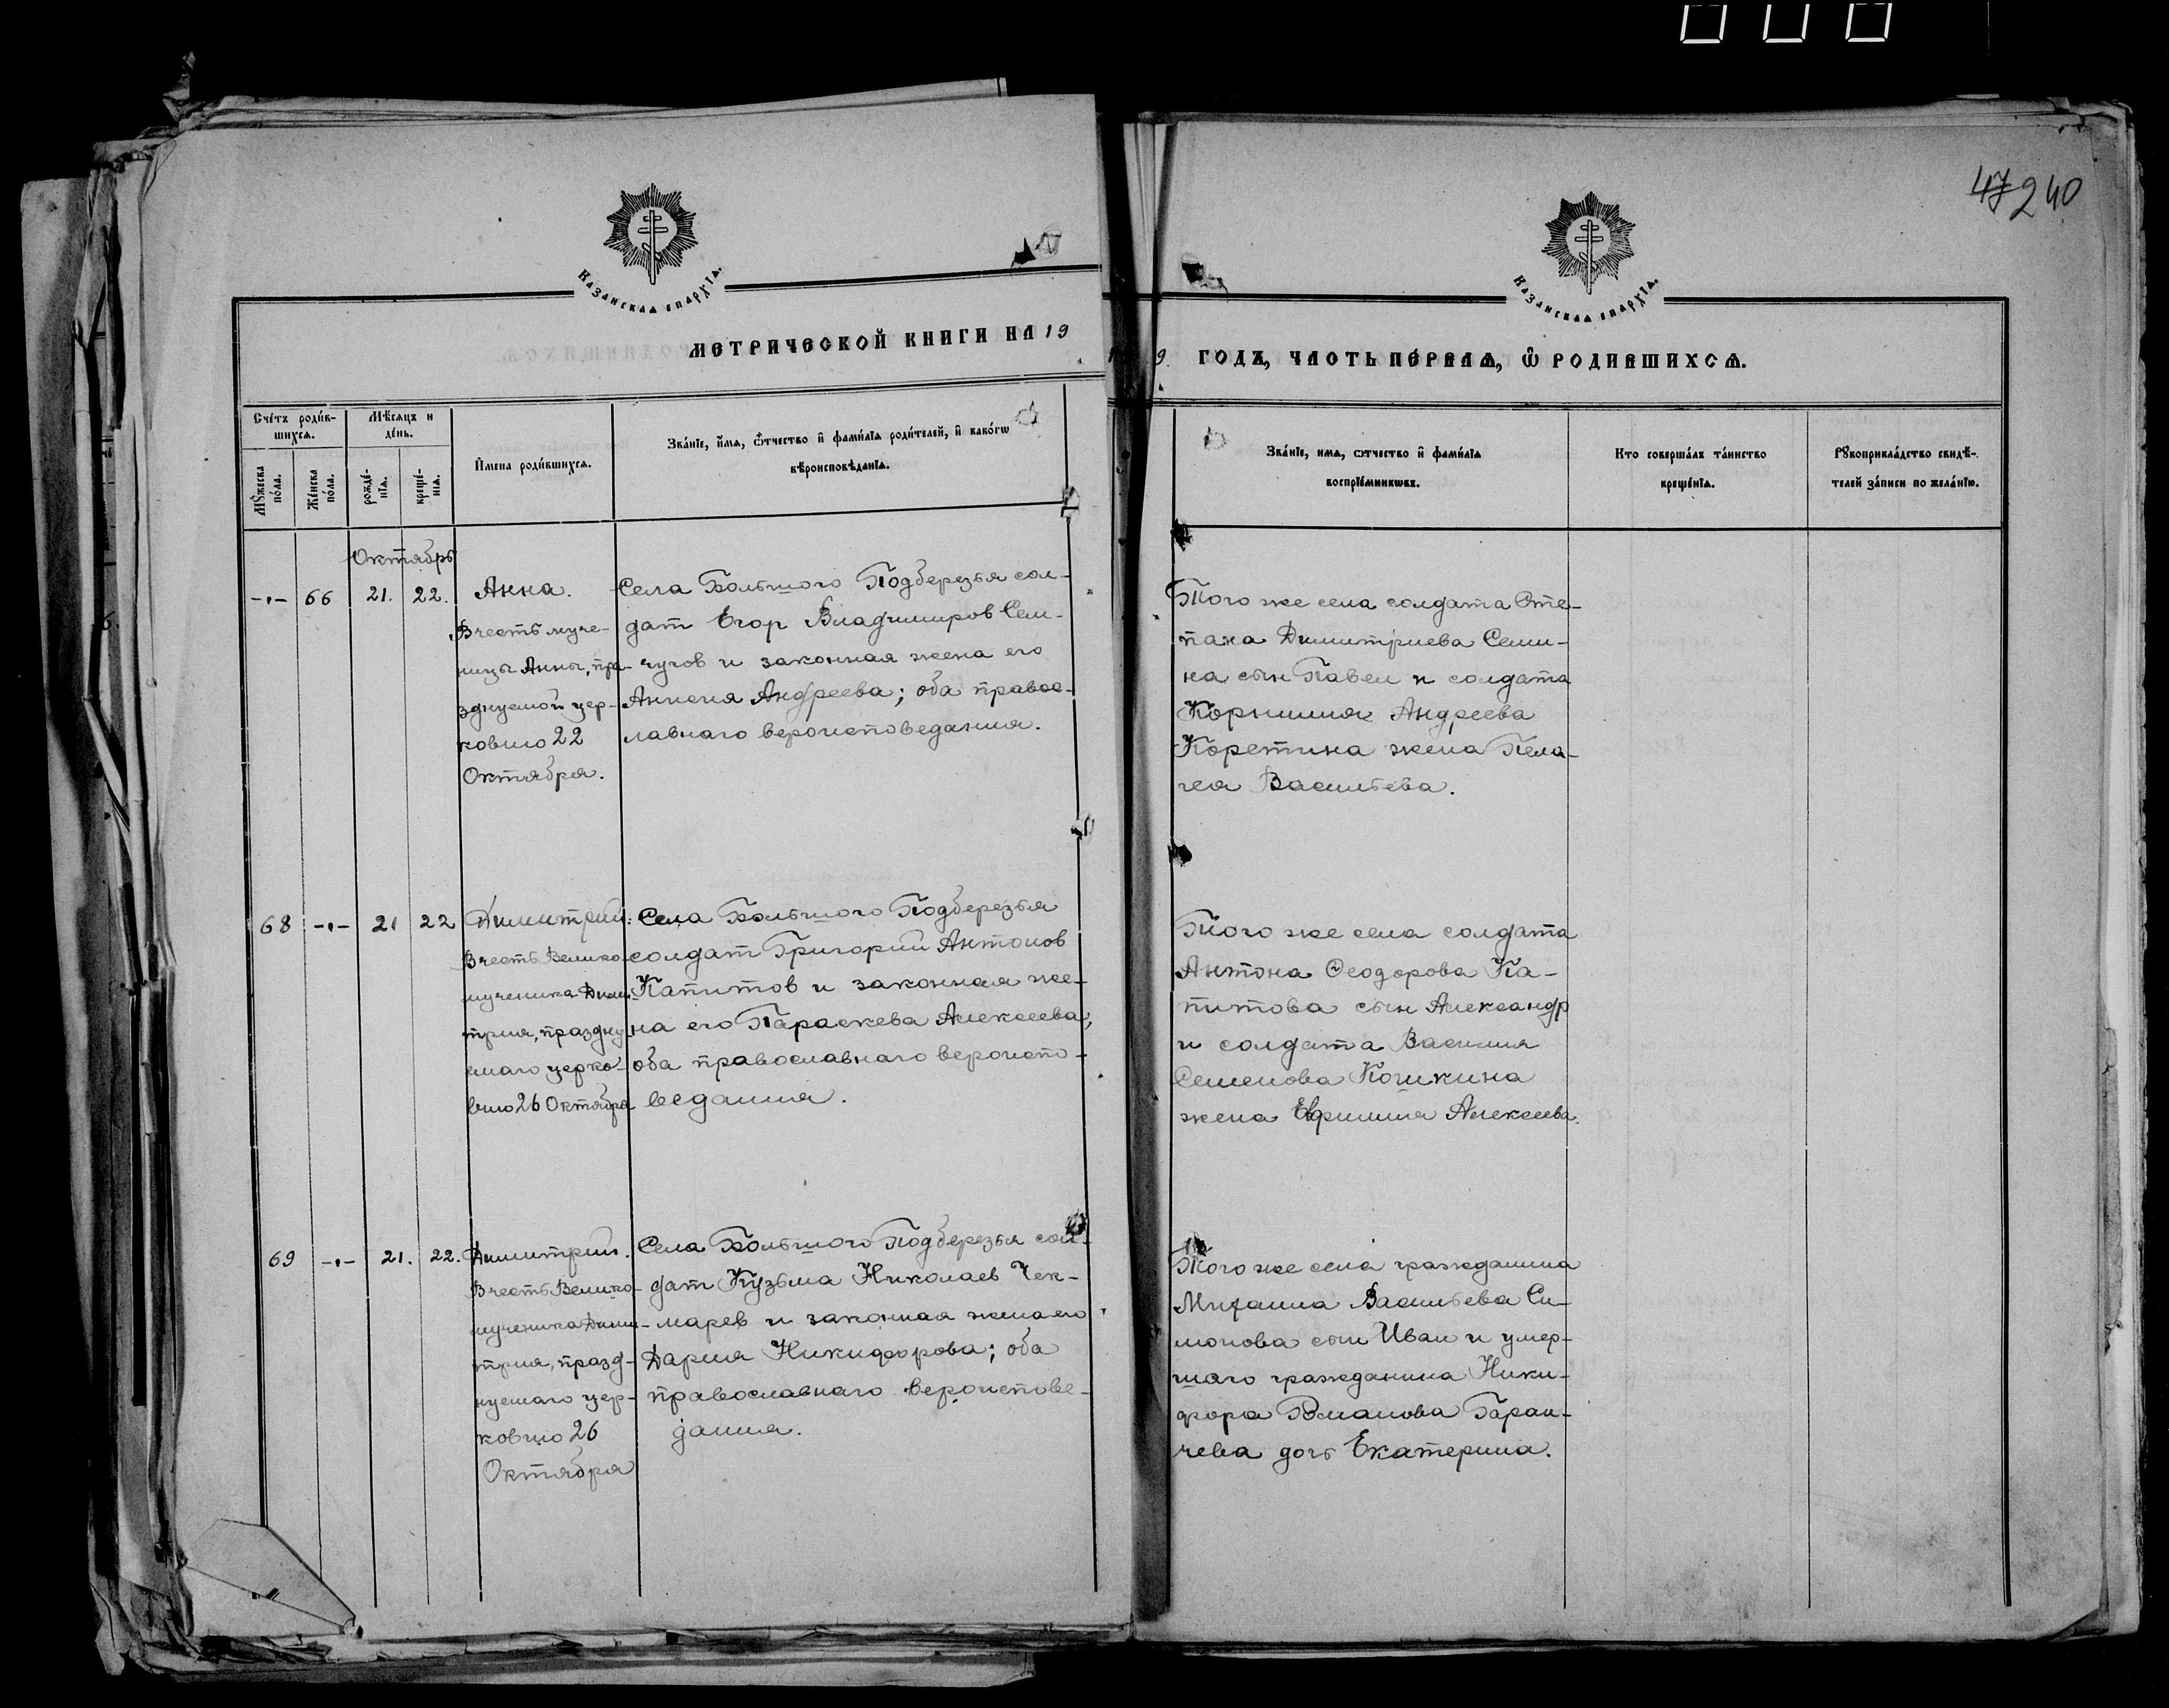 47 240
Казанская епархїя.
Казанская епархїя.
МЕТРИЧЕСКОЙ КНИГИ НА 19
9. ГОДЪ, ЧАСТЬ ПЕРВАЯ, Ѡ РОДИВШИХСѦ.
Счéтъ роди́в-
шихсѧ.
Мѣ́сѧцъ и
де́нь.
Мꙋ́жеска
по́ла.
Же́нска
по́ла.
рожде́-
нїѧ.
креще́-
нїѧ.
И҆мена роди́вшихсѧ.
Зва́нїе, и҆́мѧ, ѻ҆́тчество и҆ фами́лїѧ роди́телей, и҆ како́гѡ
вѣроисповѣ́данїѧ.
Зва́нїе, имѧ, ѻтчество и҆ фами́лїѧ
воспрїе́мникѡвъ.
Кто соверша́лъ та́инство
креще́нїѧ.
Рꙋкоприкла́дство свидѣ́-
телей за́писи по жела́нїю.
Октябрь
-"- 66 21. 22.
Анна.
В честь муче-
ницы Анны, пра-
зднуемой цер-
ковию 22
Октября.
Села Большого Подберезья сол-
дат Егор Владимиров Сем-
чугов и законная жена его
Анисия Андреева; оба правос-
лавнаго вероисповедания.
Того же села солдата Сте-
пана Димитриева Семи-
на сын Павел и солдата
Корнилия Андреева
Коретина жена Пела-
гея Васильева.
68 -"- 21 22
Димитрий:
В честь Велико-
мученика Дими-
трия, праздну
емаго церко-
вию 26 Октября
Села Большого Подберезья
солдат Григорий Антонов
Капитов и законная же-
на его Параскева Алексеева;
оба православнаго вероиспо-
ведания.
Того же села солдата
Антона Феодорова Ка-
питова сын Александр
и солдата Василия
Семенова Кошкина
жена Евфимия Алексеева.
69 -"- 21. 22.
Димитрий.
В честь Велико-
мученика Дими-
трия, празд-
нуемаго цер-
ковию 26
Октября
Села Большого Подберезья сол-
дат Кузьма Николаев Чек-
марев и законная жена его
Дария Никифорова; оба
православнаго вероиспове-
дания.
Того же села гражданина
Михаила Васильева Си-
монова сын Иван и умер-
шаго гражданина Ники-
фора Романова Баран-
чева дочь Екатерина.